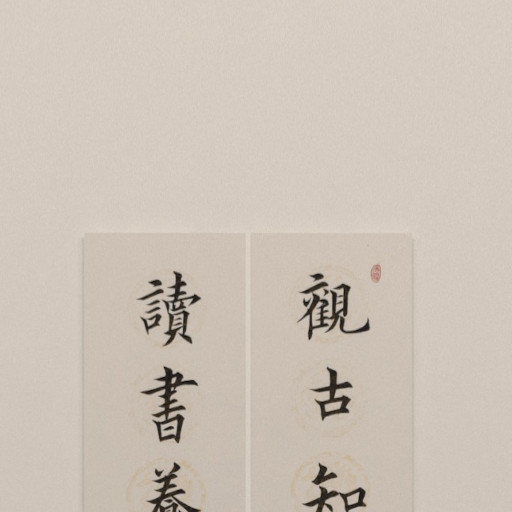 觀古知
讀書養